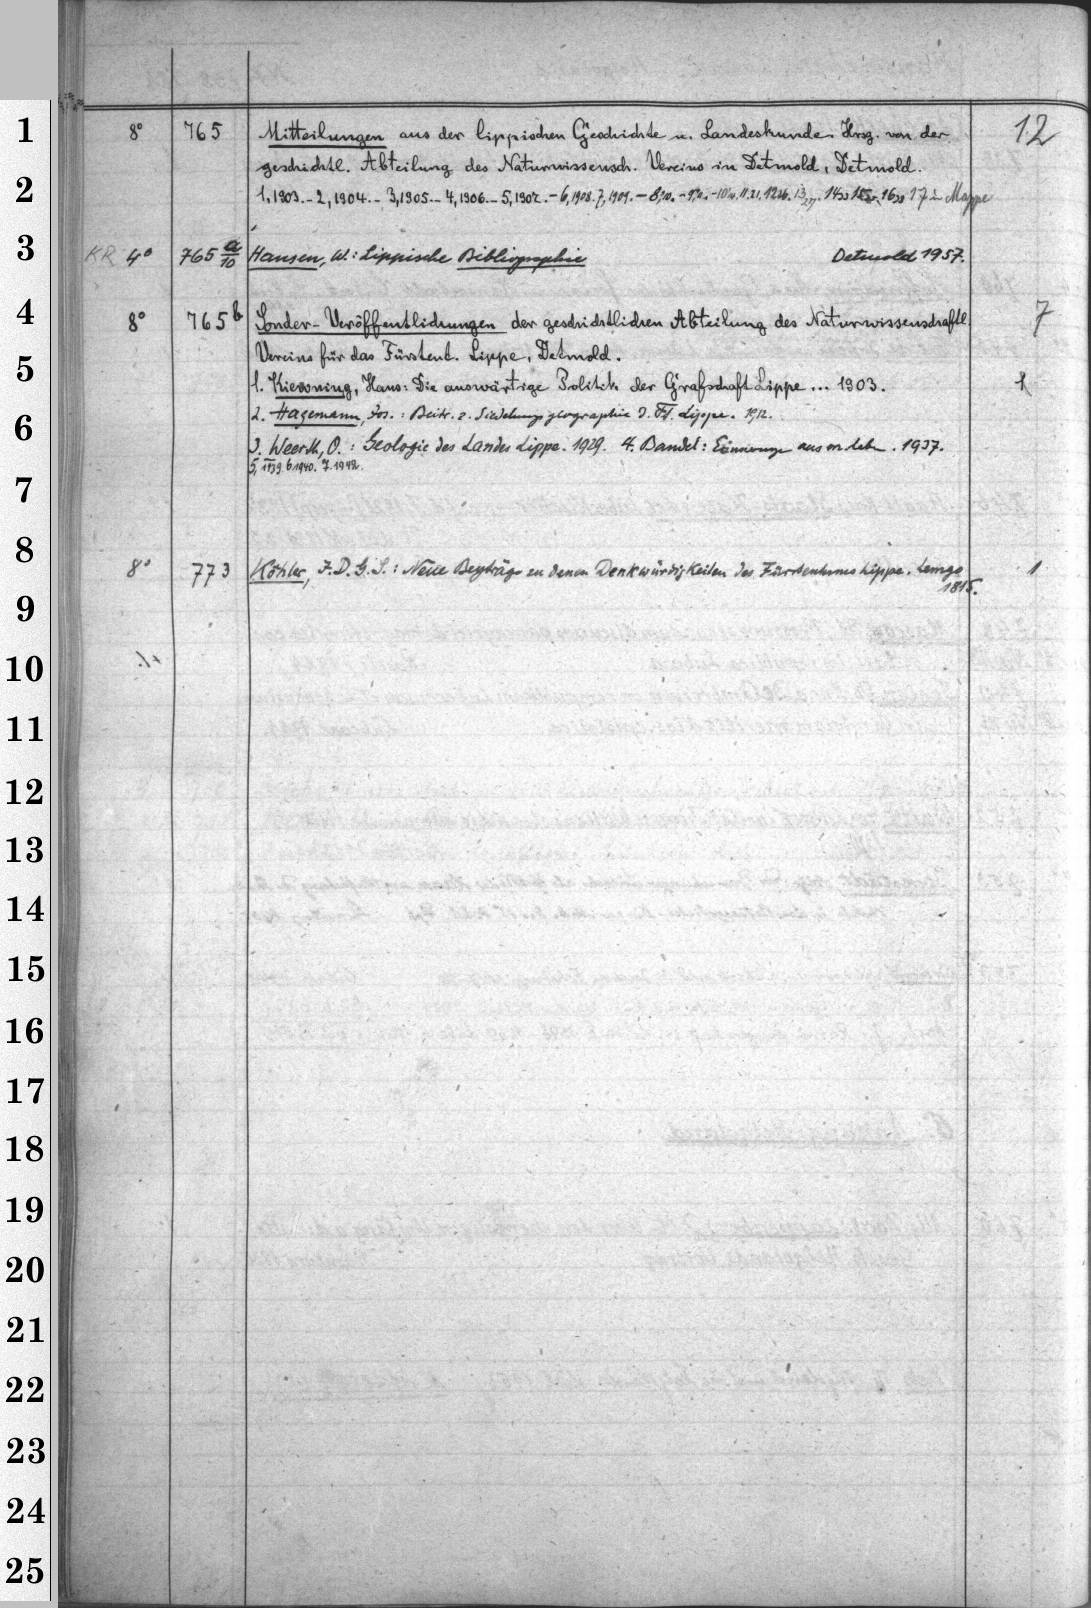 1
8° 765 Mitteilungen aus der lippischen Geschichte u. Landeskunde. Hrsg. von der 12
geschichtl. Abteilung des Naturwissensch. Vereins in Detmold, Detmold.
2
1,1903.-2,1904.-3,1905.-4,1906.-5,1907.-6,1908.7,1909.- 17 in Mappe
3
KR 4° 765 a/10 Hansen, W.: Lippische Bibliographie Detmold 1957.
4
8° 765 b Sonder-Veröffentlichungen der geschichtlichen Abteilung des Naturwissenschaftl. 7
Vereins für das Fürstent. Lippe, Detmold.
5
1. Kiewning, Hans: Die auswärtige Politik der Grafschaft Lippe ... 1903. 1
2. Hagemann, Jos.: Beitr. z. Siedelungsgeographie d. Fst. Lippe. 1912.
6
3. Weerth, O.: Geologie des Landes Lippe. 1929. 4. Bandel: Erinnerungen aus m. Leben. 1937.
5, 1939. 6 1940. 7. 1942.
7
8
8° 773 Köhler, F.D.G.S.: Neue Beyträge zu denen Denkwürdigkeiten des Fürstenthums Lippe. Lemgo 1
1815.
9
10
11
12
13
14
15
16
17
18
19
20
21
22
23
24
25